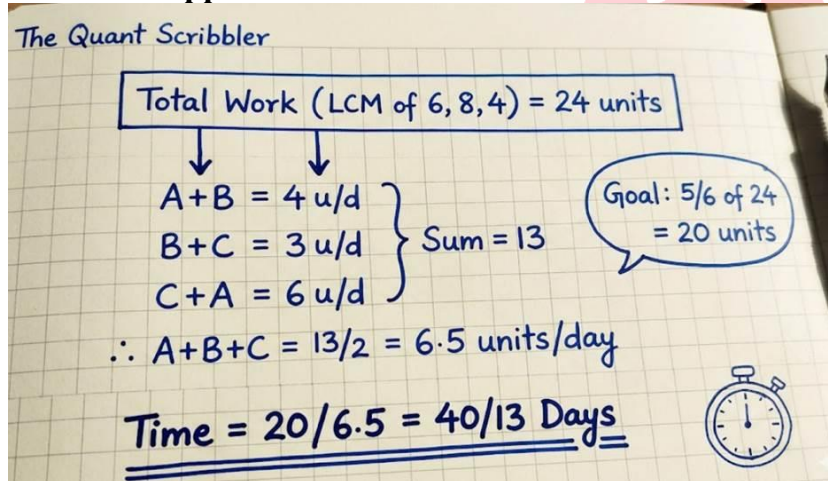 The Quant Scribbler
Total Work (LCM of 6, 8, 4) = 24 units
A+B = 4 u/d
B+C = 3 u/d
C+A = 6 u/d
Sum = 13
Goal: 5/6 of 24
= 20 units
∴ A+B+C = 13/2 = 6.5 units/day
Time = 20/6.5 = 40/13 Days